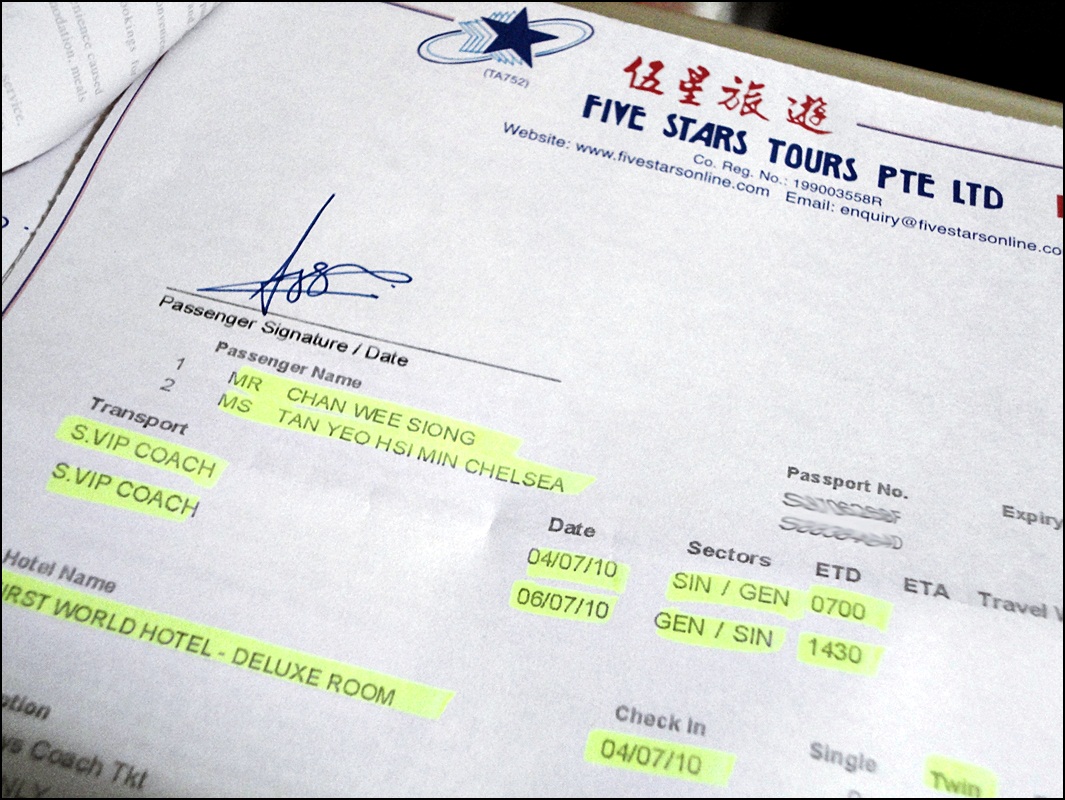 service,
ndation, meals
enience caused
ookings
(TA752)
伍星旅遊
FIVE STARS TOURS PTE LTD
Co. Reg. No.: 199003558R
Website: www.fivestarsonline.com Email: enquiry@fivestarsonline.co
Passenger Signature / Date
Passenger Name
1 MR CHAN WEE SIONG
2 MS TAN YEO HSI MIN CHELSEA
Passport No. Expiry
Transport Date Sectors ETD ETA Travel
S.VIP COACH 04/07/10 SIN / GEN 0700
S.VIP COACH 06/07/10 GEN / SIN 1430
Hotel Name Check In Single Twin
IRST WORLD HOTEL - DELUXE ROOM 04/07/10
ption
ys Coach Tkt
NLY